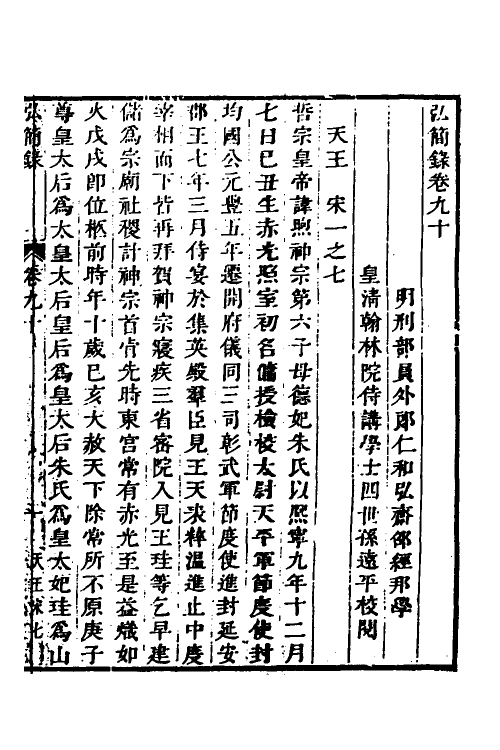 弘簡錄卷九十
明刑部員外郎仁和弘齋邵經邦學
皇清翰林院侍講學士四世孫遠平校閱
天王 宋一之七
哲宗皇帝諱煦神宗第六子母德妃朱氏以熙寧九年十二月
七日已丑生赤光照室初名傭授檢校太尉天平軍節度使封
均國公元豐五年遷開府儀同三司彰武軍節度使進封延安
郡王七年三月侍宴於集英殿羣臣見王天表粹溫進止中度
宰相而下皆再拜賀神宗寢疾三省密院入見王珪等乞早建
儲爲宗廟社稷計神宗首肯先時東宮常有赤光至是益熾如
火戊戌卽位柩前時年十歲已亥大赦天下除常所不原庚子
尊皇太后爲太皇太后皇后爲皇太后朱氏爲皇太妃珪爲山
弘簡錄 卷九十 天王宋七